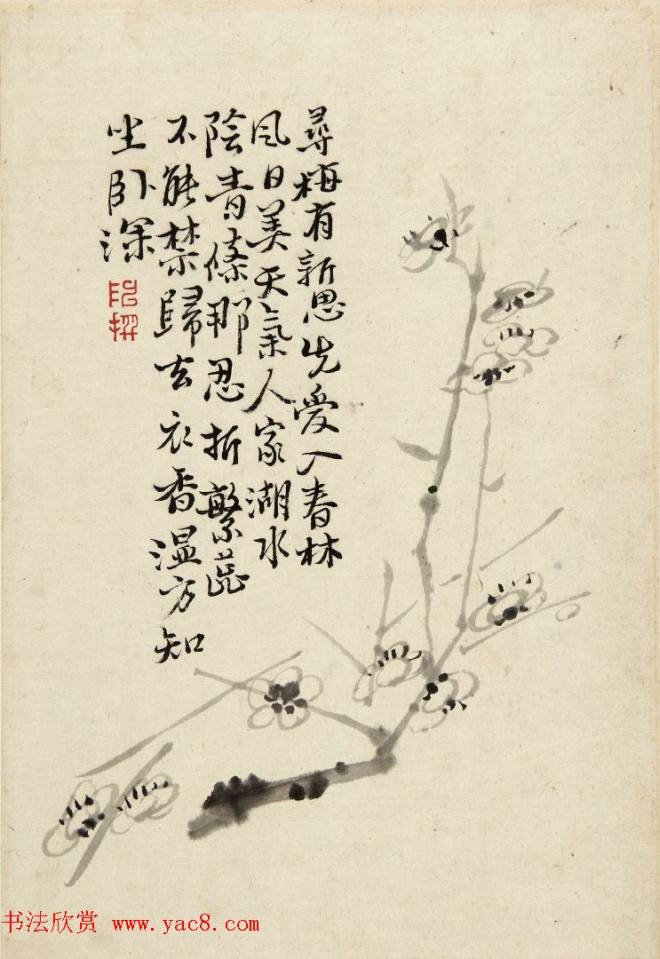 尋梅有新思先愛入春林
風日美天氣人家湖水
陰青條那忍折繁蕊
不能禁歸去衣香温方知
坐卧深
书法欣赏 www.yac8.com